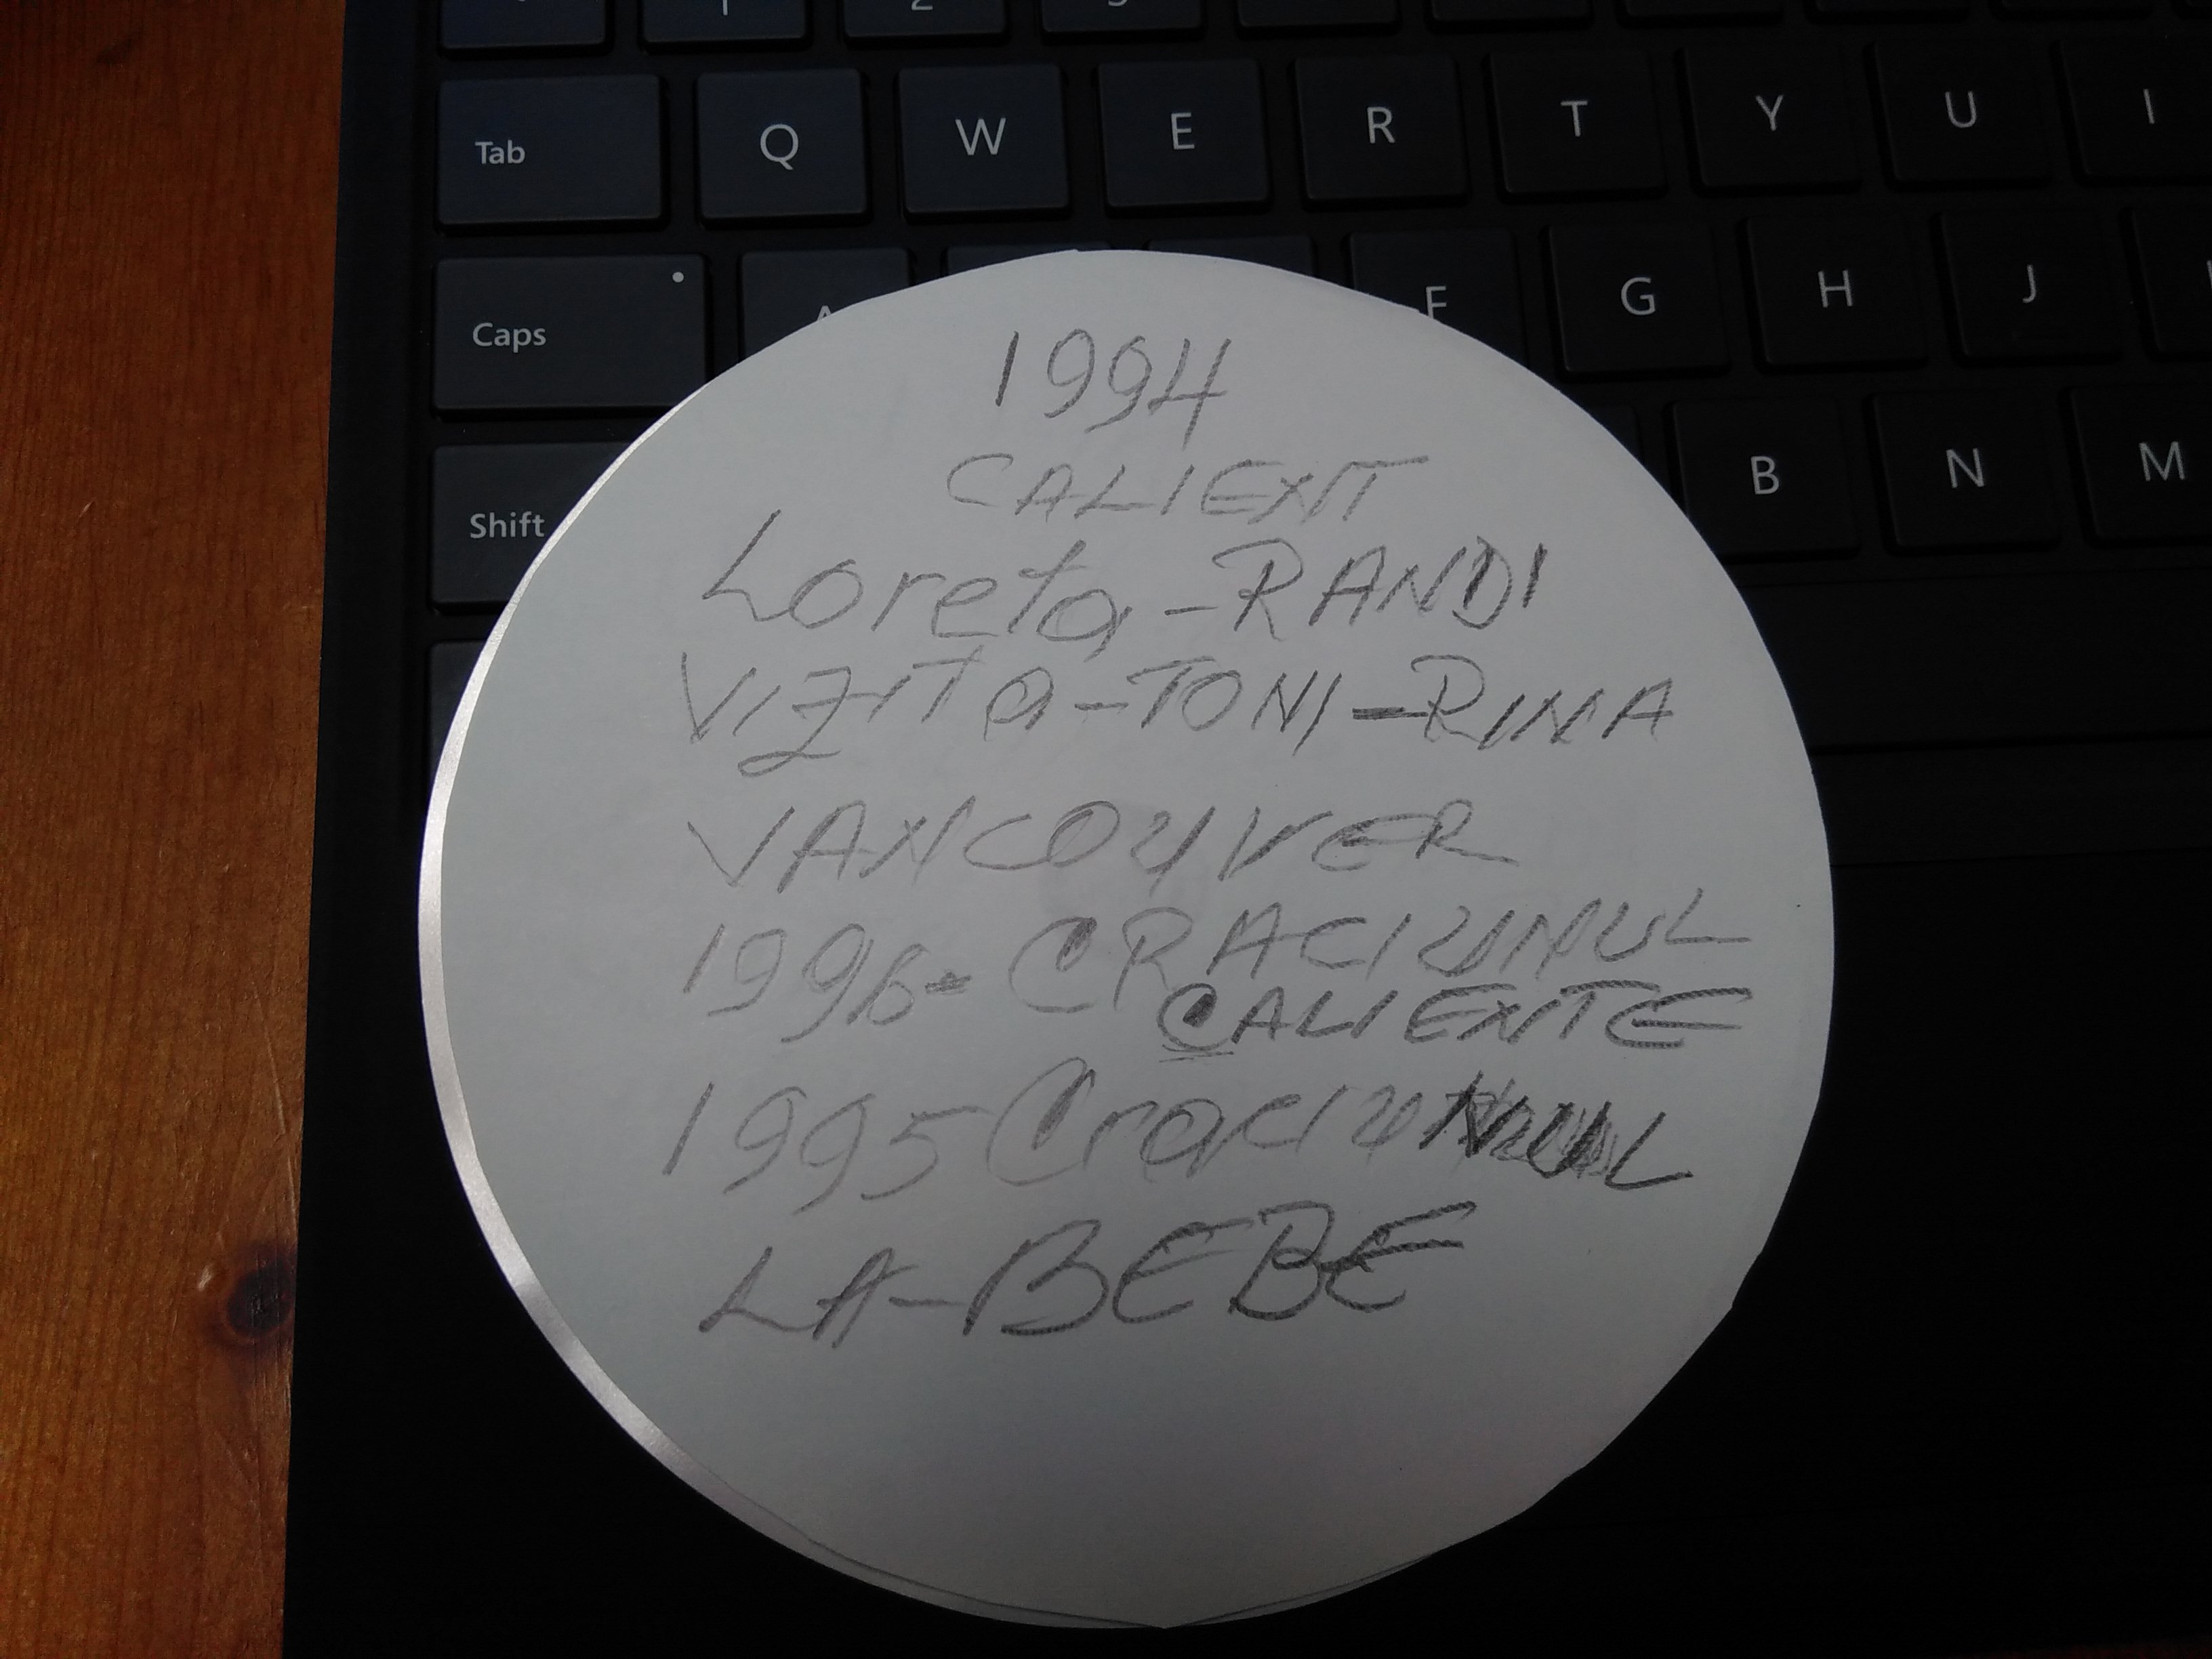 1 2 3
Tab Q W E R T Y U I
Caps A F G H J
Shift B N M
1994
CALIENT
Loreta-RANDI
VIZITa-TONI-RINA
VANCOUVER
1996- CRACIUNUL
CALIENTE
1995 CraciuNUL
LA-BEBE